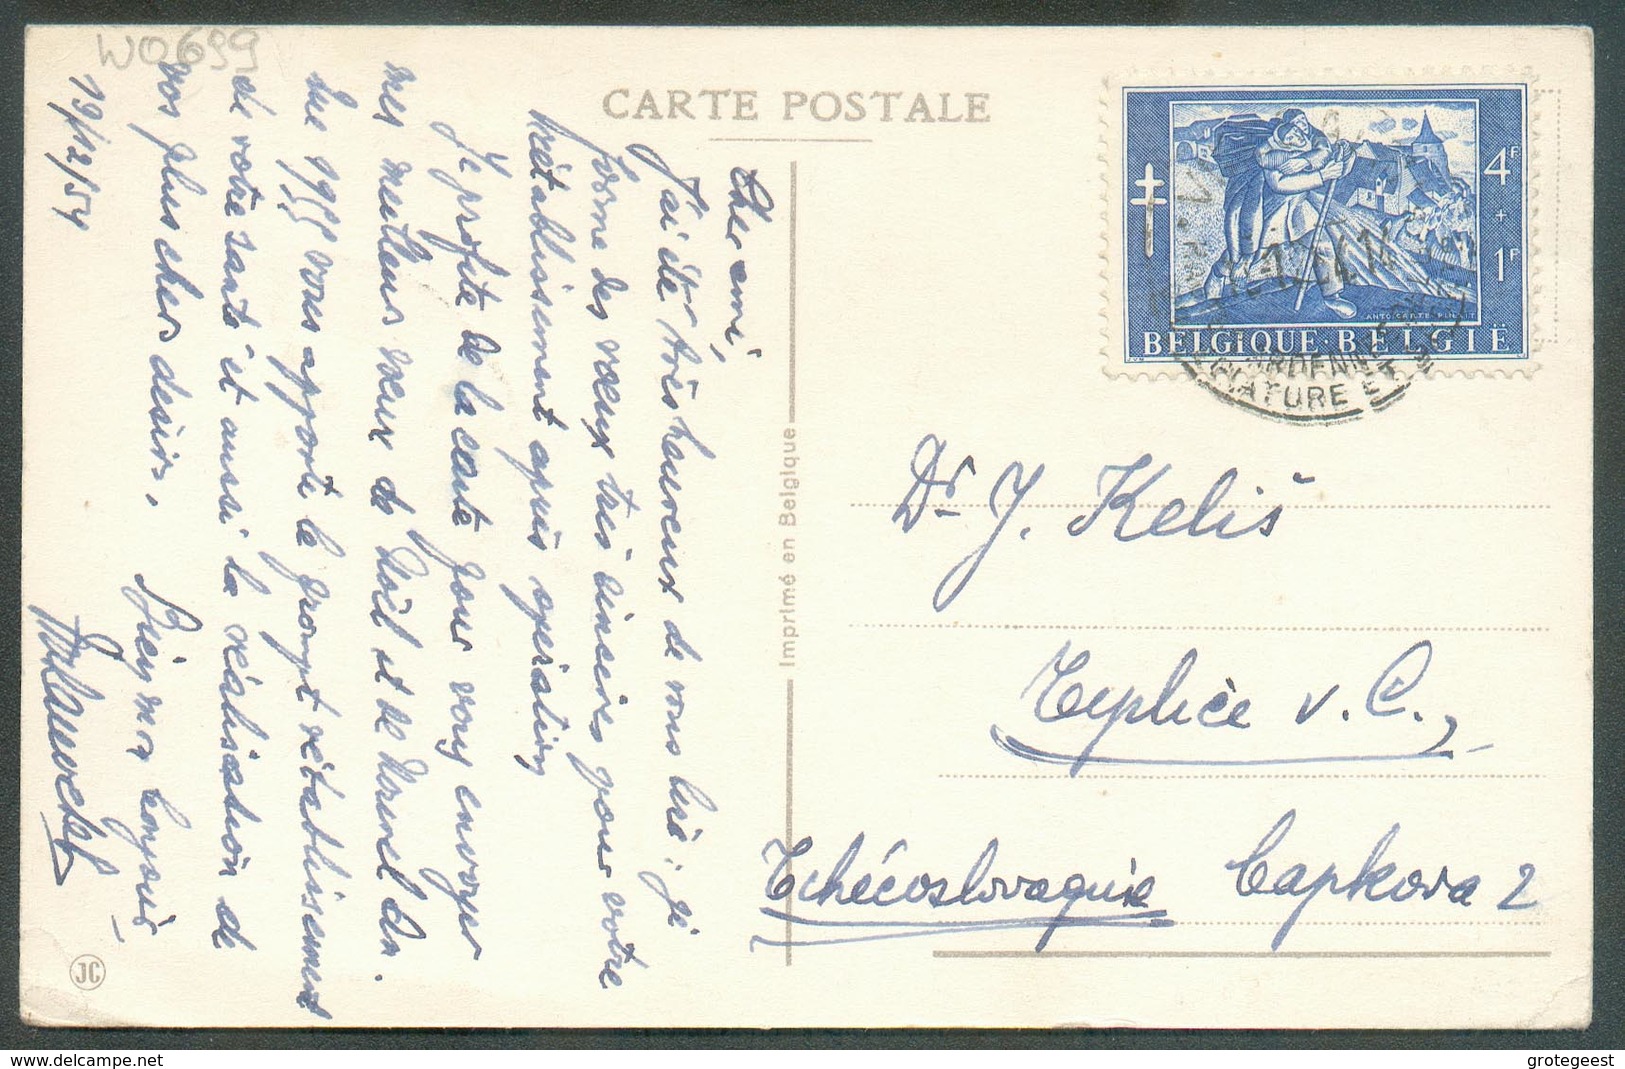 W0699
CARTE POSTALE
4F
+
1F
ANTO-CARTE PINXIT
BELGIQUE·BELGIË
ARDENNE
CIATURE ET
Imprimé en Belgique
JC
19/12/54
Cher ami,
J'ai été très heureux de vous lire, je
forme des vœux très sincères pour votre
rétablissement après opération
Je profite de la carte pour vous envoyer
mes meilleurs vœux de Noël et de Nouvel An.
Que 1955 vous apporte le prompt rétablissement
de votre santé et aussi la réalisation de
vos plus chers désirs.
Bien mon
Dr J. Keliš
Teplice v. C.,
Tchécoslovaquie Capkova 2
delcampe.net
grotegeest